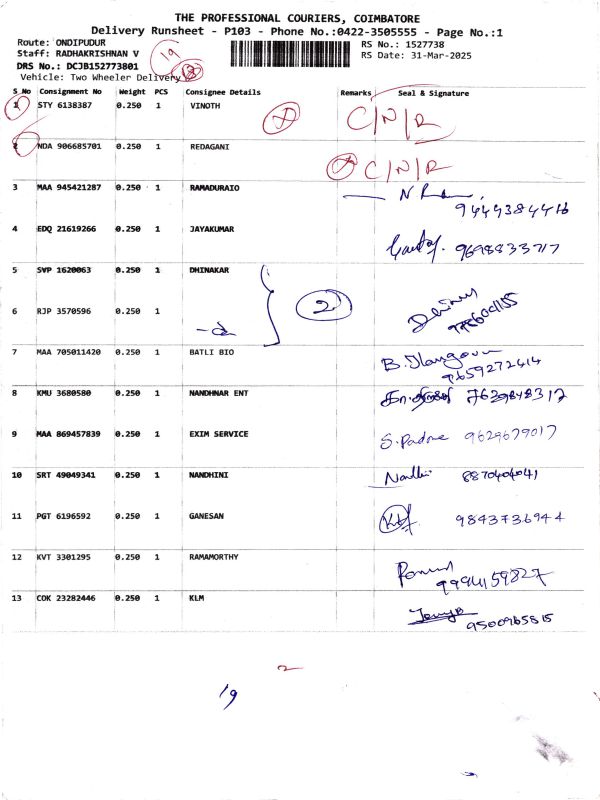 THE PROFESSIONAL COURIERS, COIMBATORE
Delivery Runsheet - P103 - Phone No.:0422-3505555 - Page No.:1
Route: ONDIPUDUR RS No.: 1527738
Staff: RADHAKRISHNAN V 19 RS Date: 31-Mar-2025
DRS No.: DCJB152773801
Vehicle: Two Wheeler Delivery
S No Consignment No Weight PCS Consignee Details Remarks Seal & Signature
1 STY 6138387 0.250 1 VINOTH C/N/R
2 NDA 906685701 0.250 1 REDAGANI C/N/R
3 MAA 945421287 0.250 1 RAMADURAIO
9444384416
4 EDQ 21619266 0.250 1 JAYAKUMAR 9698833717
5 SVP 1620063 0.250 1 DHINAKAR 2
6 RJP 3570596 0.250 1
7 MAA 705011420 0.250 1 BATLI BIO B. Ilangovan
9659272414
8 KMU 3680580 0.250 1 NANDHNAR ENT 7639848317
9 MAA 869457839 0.250 1 EXIM SERVICE S. Padma 9629679017
10 SRT 49049341 0.250 1 NANDHINI Nandhini 8870404041
11 PGT 6196592 0.250 1 GANESAN 9843736944
12 KVT 3301295 0.250 1 RAMAMORTHY
9994159827
13 COK 23282446 0.250 1 KLM
9500965815
2
19